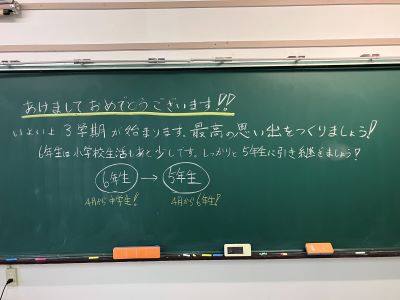 あけまして おめでとうございます!!
いよいよ 3学期 が 始まります。最高の思い出をつくりましょう!
6年生は小学校生活もあと少しです。しっかりと 5年生に引き継ぎましょう!
6年生 → 5年生
4月から中学生!! 4月から6年生!